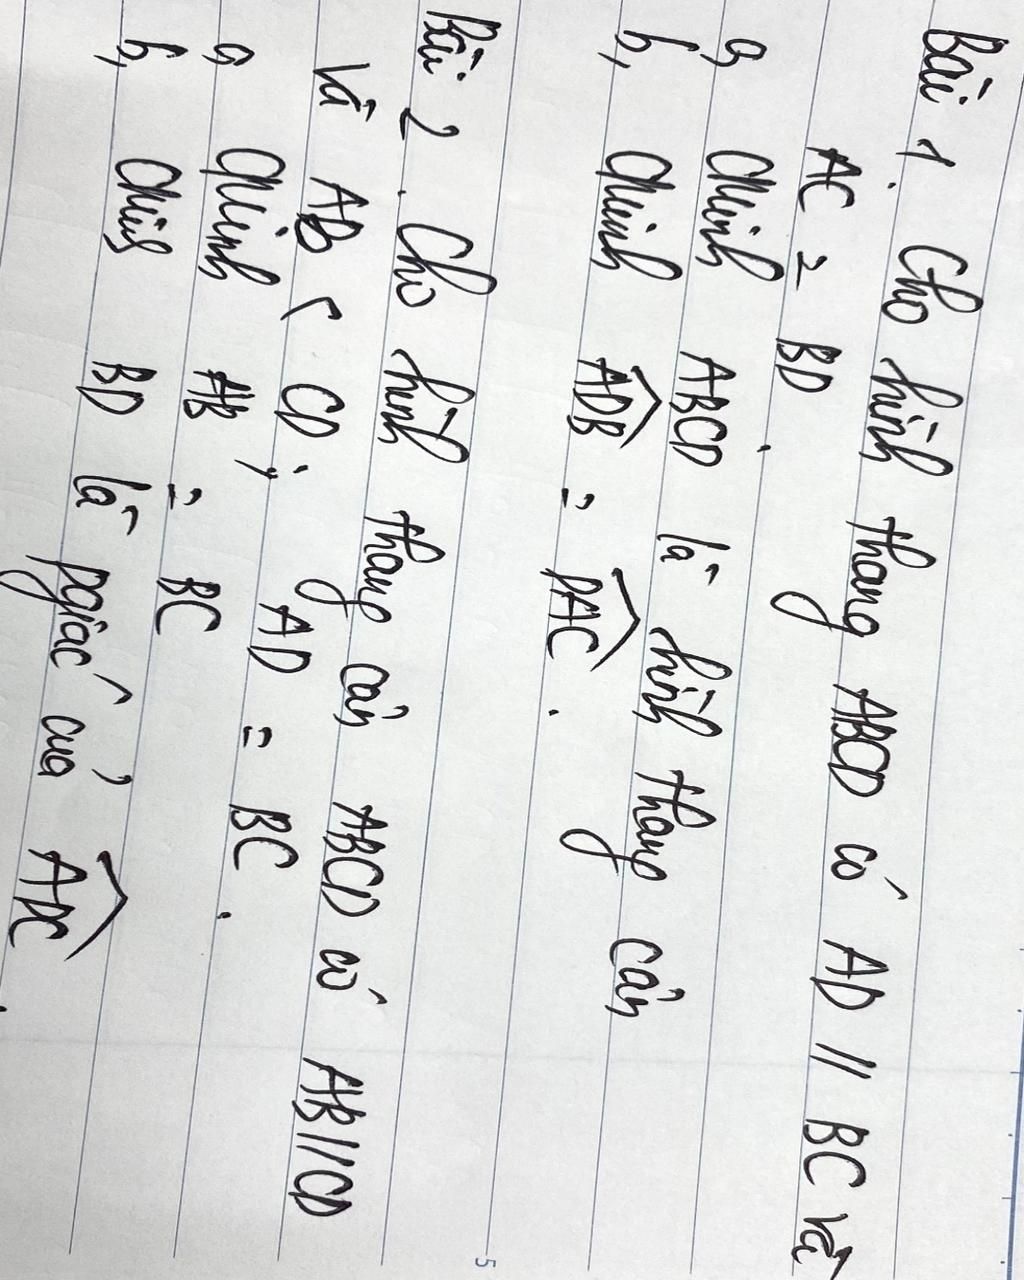 Bài 1. Cho hình thang ABCD có AD // BC và
AC = BD.
a, Chminh ABCD là hình thang cân
b, Chminh ADB = DAC.
Bài 2. Cho hình thang cân ABCD có AB//CD
Và AB < CD; AD = BC.
a, Chminh AB = BC
b, Chminh BD là pgiác của ADC
5